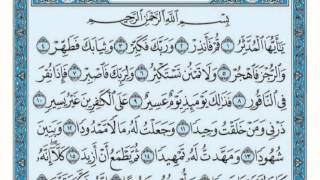 بِسْمِ اللَّهِ الرَّحْمَٰنِ الرَّحِيمِ
يَا أَيُّهَا الْمُدَّثِّرُ ۝١ قُمْ فَأَنذِرْ ۝٢ وَرَبَّكَ فَكَبِّرْ ۝٣ وَثِيَابَكَ فَطَهِّرْ ۝٤
وَالرُّجْزَ فَاهْجُرْ ۝٥ وَلَا تَمْنُن تَسْتَكْثِرُ ۝٦ وَلِرَبِّكَ فَاصْبِرْ ۝٧ فَإِذَا نُقِرَ
فِي النَّاقُورِ ۝٨ فَذَٰلِكَ يَوْمَئِذٍ يَوْمٌ عَسِيرٌ ۝٩ عَلَى الْكَافِرِينَ غَيْرُ يَسِيرٍ ۝١٠
ذَرْنِي وَمَنْ خَلَقْتُ وَحِيدًا ۝١١ وَجَعَلْتُ لَهُ مَالًا مَّمْدُودًا ۝١٢ وَبَنِينَ
شُهُودًا ۝١٣ وَمَهَّدتُّ لَهُ تَمْهِيدًا ۝١٤ ثُمَّ يَطْمَعُ أَنْ أَزِيدَ ۝١٥ كَلَّا إِنَّهُ